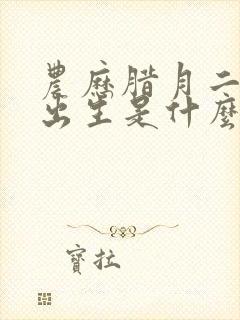 農歷腊月二
出生是什麼
寶拉